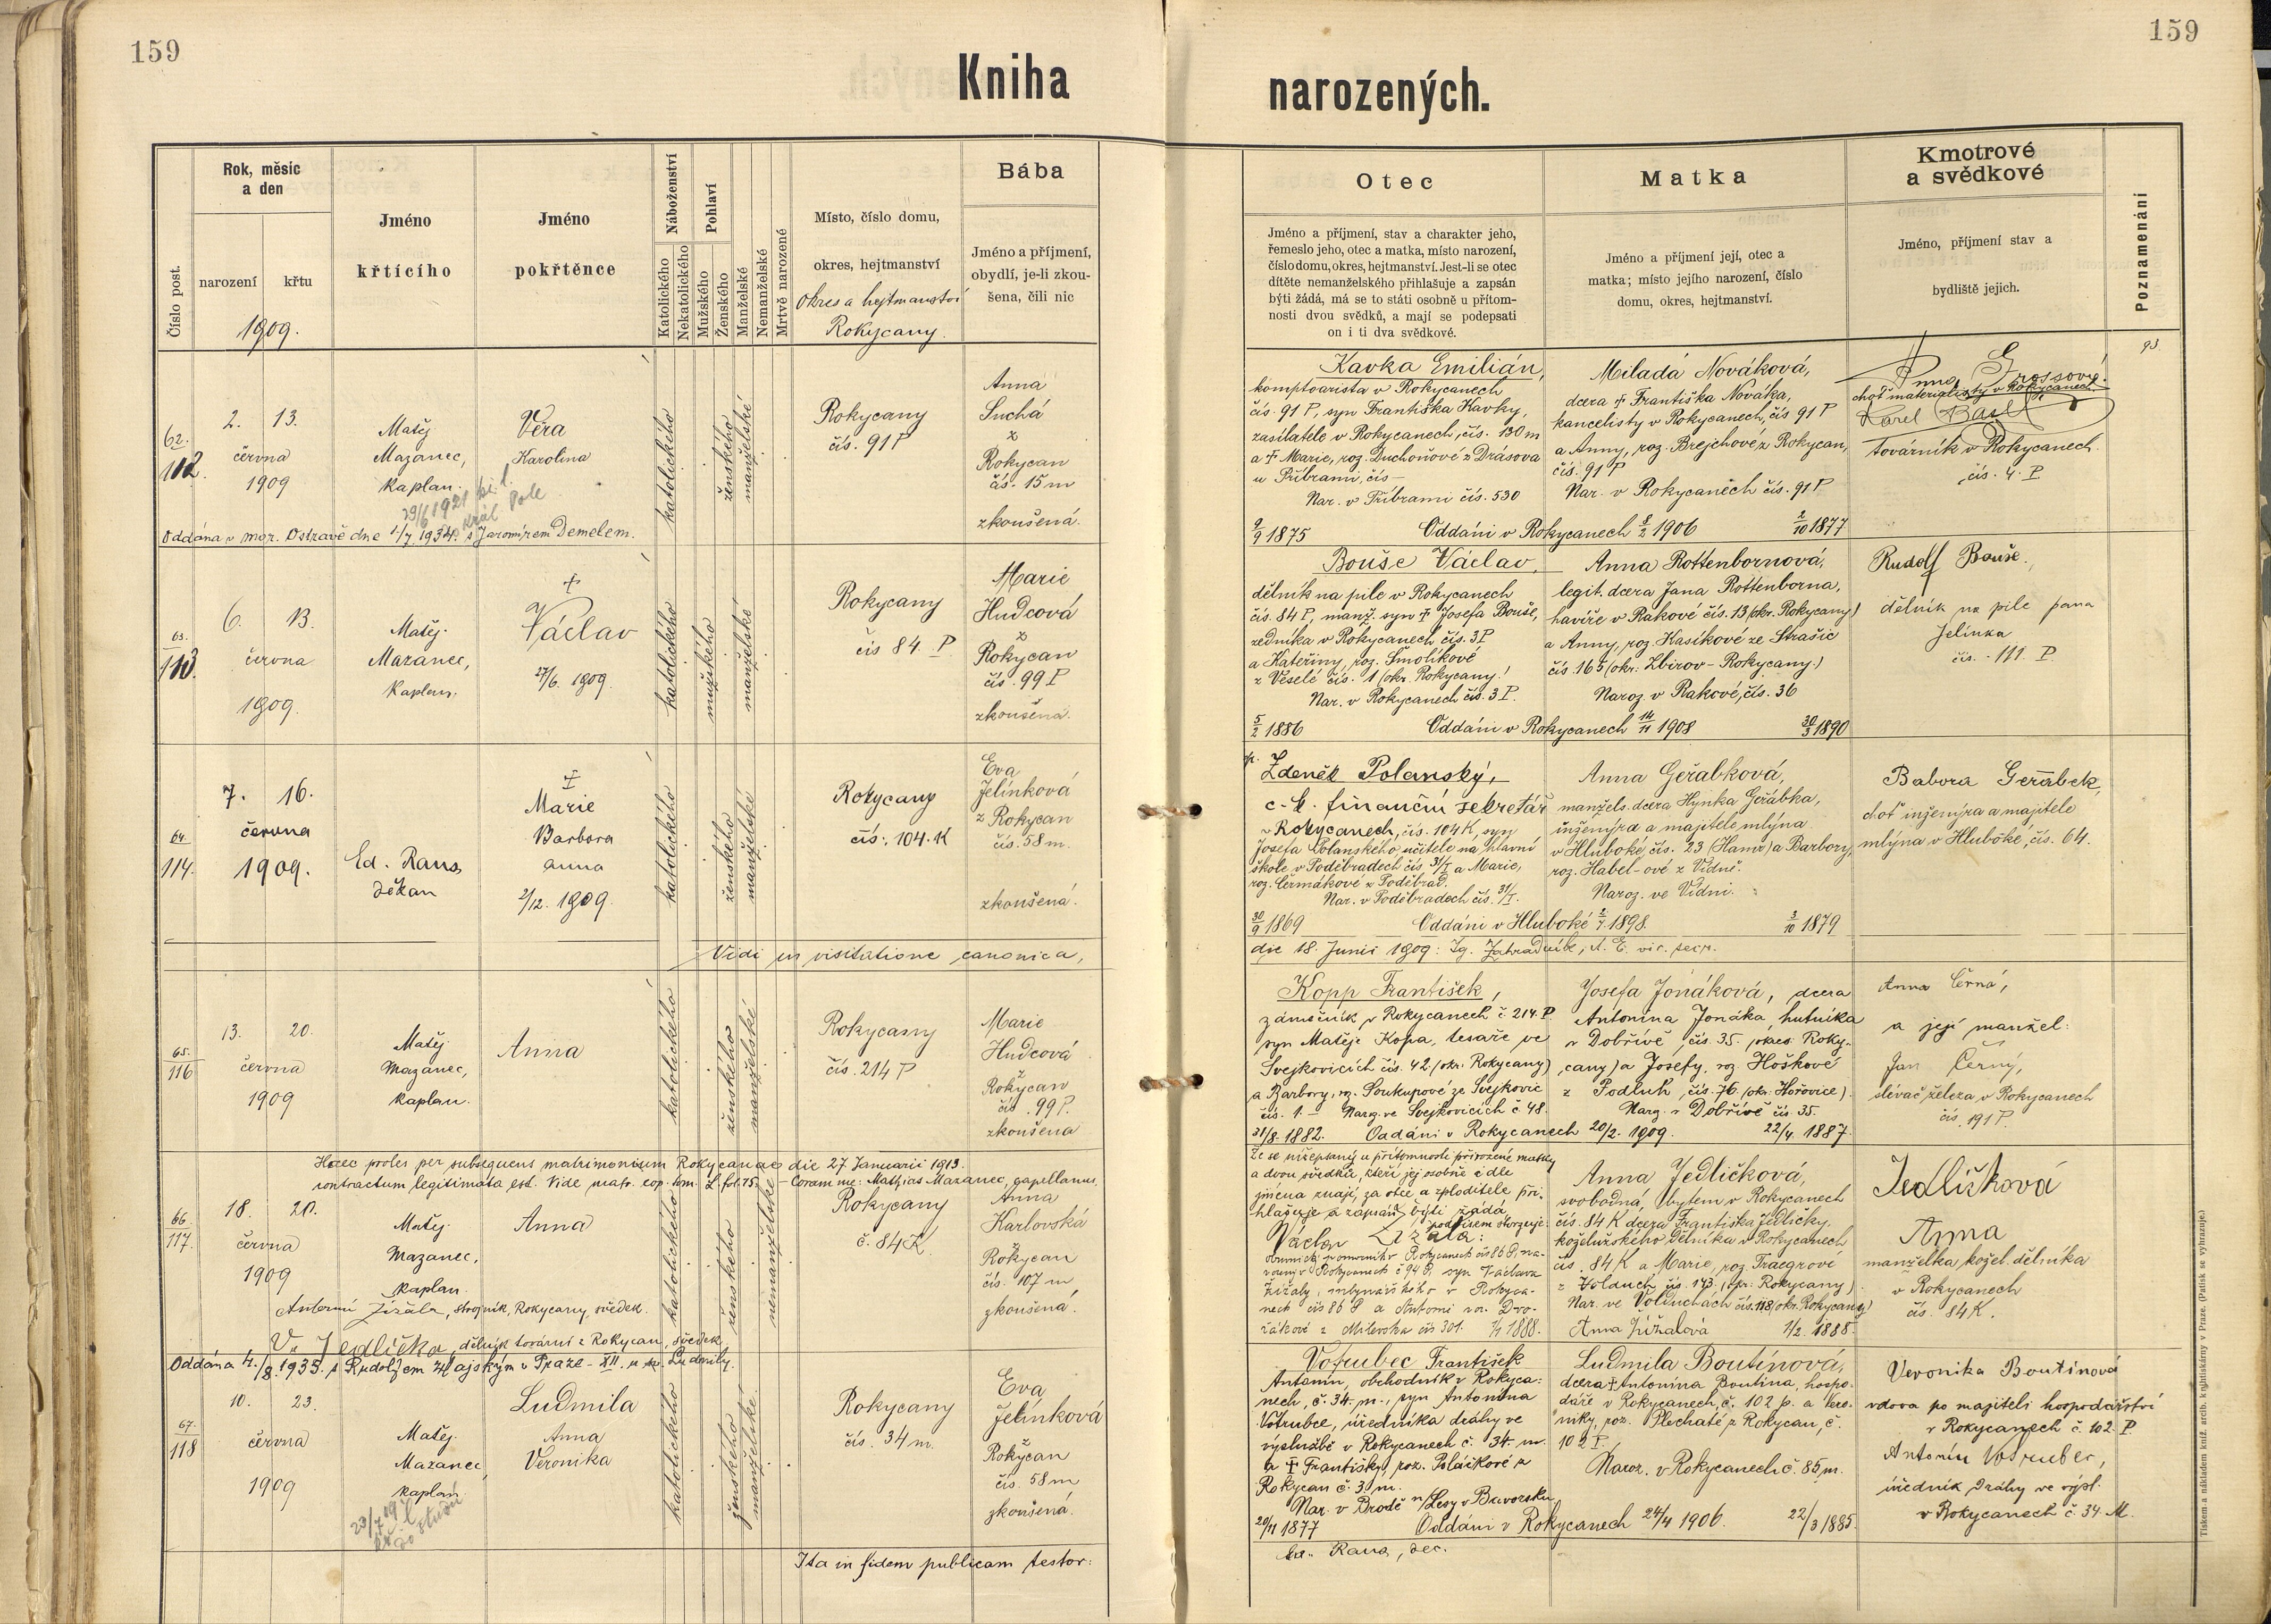 159
159
Kniha
narozených.
Číslo post.
Rok, měsíc
a den
narození
křtu
1909.
Jméno
křtícího
Jméno
pokřtěnce
Náboženství
Katolického
Nekatolického
Pohlaví
Mužského
Ženského
Manželské
Nemanželské
Mrtvě narozené
Místo, číslo domu,
okres, hejtmanství
Okres a hejtmanství
Rokycany
Bába
Jméno a příjmení,
obydlí, je-li zkou-
šena, čili nic
Otec
Jméno a příjmení, stav a charakter jeho,
řemeslo jeho, otec a matka, místo narození,
číslo domu, okres, hejtmanství. Jest-li se otec
dítěte nemanželského přihlašuje a zapsán
býti žádá, má se to státi osobně u přítom-
nosti dvou svědků, a mají se podepsati
on i ti dva svědkové.
Matka
Jméno a příjmení její, otec a
matka; místo jejího narození, číslo
domu, okres, hejtmanství.
Kmotrové
a svědkové
Jméno, příjmení stav a
bydliště jejich.
Poznamenání
62.
112.
2. 13.
června
1909
Matěj
Mazanec,
kaplan.
Věra
Karolina
katolického
ženského
manželské
Rokycany
čís. 91 P
Anna
Suchá
z
Rokycan
čís. 15 m
zkoušená.
29/6 1921
Oddána v mor. Ostravě dne 1/7. 1934. s Jaromírem Demelem.
Kavka Emilián,
komptoarista v Rokycanech
čís. 91 P, syn Františka Kavky,
zasilatele v Rokycanech, čís. 130 m
a † Marie, roz. Duchoňové z Drásova
u Příbrami, čís —
Nar. v Příbrami čís. 530
9/9 1875 Oddáni v Rokycanech 8/2 1906 2/10 1877
Milada Nováková,
dcera † Františka Nováka,
kancelisty v Rokycanech, čís 91 P
a Anny, roz. Brejchové z Rokycan,
čís. 91 P
Nar. v Rokycanech čís. 91 P
Anna Grossová.
choť materialisty v Rokycanech
Karel
továrník v Rokycanech.
čís. 4 P
63.
113.
6. 13.
června
1909.
Matěj
Mazanec,
kaplan.
†
Václav
27/6. 1909.
katolického
mužského
manželské
Rokycany
čís 84 P.
Marie
Hudcová
z
Rokycan
čís. 99 P
zkoušená.
Bouše Václav,
dělník na pile v Rokycanech
čís. 84 P, manž. syn † Josefa Bouše,
zedníka v Rokycanech čís. 3 P
a Kateřiny, roz. Šmolíkové
z Veselé čís. 1 (okr. Rokycany)
Nar. v Rokycanech čís. 3 P.
5/2 1886 Oddáni v Rokycanech 14/11 1908 30/3 1890
Anna Rottenbornová,
legit. dcera Jana Rottenborna,
havíře v Rakové čís. 13 (okr. Rokycany)
a Anny, roz. Kasíkové ze Strašic
čís. 165 (okr. Zbirov – Rokycany.)
Naroz. v Rakové, čís. 36
Rudolf Bouše.
dělník na pile pana
Jelínka
čís. 111. P.
64.
114.
7. 16.
června
1909.
Ed. Raus
děkan
†
Marie
Barbora
Anna
2/12. 1909.
katolického
ženského
manželské
Rokycany
čís: 104. K
Eva
Jelínková
z Rokycan
čís. 58 m.
zkoušená.
p. Zdeněk Polanský,
c.k. finanční sekretář
v Rokycanech, čís. 104 K, syn
Josefa Polanského, učitele na hlavní
škole v Poděbradech čís 31/I a Marie,
roz. Čermákové z Poděbrad.
Nar. v Poděbradech čís. 31/I.
30/9 1869 Oddáni v Hluboké 2/7 1898. 3/10 1879
Anna Geřabková,
manžels. dcera Hynka Geřábka,
inženýra a majitele mlýna
v Hluboké, čís. 23 (Hamr) a Barbory,
roz. Habel-ové z Vídně.
Naroz. ve Vídni.
Babora Geřábek,
choť inženýra a majitele
mlýna v Hluboké, čís. 64.
Vidi in visitatione canonica,
die 18. Junii 1909: Ig. Zahradník, A. E. vic. secr.
65.
116
13. 20.
června
1909
Matěj
Mazanec,
kaplan.
Anna
katolického
ženského
manželské
Rokycany
čís. 214 P
Marie
Hudcová
z
Rokycan
čís. 99 P.
zkoušena
Kopp František,
zámečník v Rokycanech č 214. P
syn Matěje Kopa, tesaře ve
Svejkovicích čís. 42 (okr. Rokycany)
a Barbory, roz. Soukupové ze Svejkovic
čís. 1. — Naroz. ve Svejkovicích č 48.
31/8. 1882. Oddáni v Rokycanech 20/2. 1909. 22/4. 1887.
Josefa Jonáková, dcera
Antonína Jonáka, hutníka
v Dobřívě, čís. 35. okres Roky-
cany) a Josefy, roz Hoškové
z Podluh, čís. 76. (okr. Hořovice)
Naroz. v Dobřívě čís. 35.
Anna Černá,
a její manžel:
Jan Černý,
slévač železa v Rokycanech
čís. 191 P.
Haec proles per subsequens matrimonium Rokycanae die 27. Januarii 1913.
contractum legitimata est. Vide matr. cop. tom. fol. 75. — Coram me: Mathias Mazanec, capellanus.
66
117.
18. 20.
června
1909
Matěj
Mazanec,
kaplan.
Anna
katolického
ženského
nemanželské
Rokycany
č. 84 K
Anna
Karlovská
z
Rokycan
čís. 107 m
zkoušená.
Antonín Žížala, strojník, Rokycany, svědek.
V. Jedlička, dělník tovární z Rokycan, svědek
Že se nížepsaný u přítomnosti přirozené matky
a dvou svědků, kteří jej osobně i dle
jména znají, za otce a zploditele při-
hlašuje a zapsán býti žádá,
podpisem stvrzuje:
Václav Žížala:
v Rokycanech čís 86 P, na-
rozený v Rokycanech č 94 P, syn Václava
Žížaly, mlynářského v Rokyca-
nech čís 86 P a Antonie roz. Dvo-
řákové z Milevska čís 301. 1888.
Anna Jedličková,
svobodná, bytem v Rokycanech
čís. 84 K dcera Františka Jedličky,
koželužského dělníka v Rokycanech
čís. 84 K a Marie, roz. Traegrové
z Holduch, čís. 143. (okr. Rokycany)
Nar. ve Volduchách čís. 118 (okr. Rokycany)
Anna Žížalová 1/2. 1888.
Jedličková
Anna
manželka kožel. dělníka
v Rokycanech
čís. 84 K.
Oddána 4./8. 1935. s Rudolfem Majským v Praze – XII. u sv. Ludmily.
67.
118
10. 23.
června
1909
Matěj
Mazanec,
kaplan.
Ludmila
Anna
Veronika
katolického
ženského
manželské
Rokycany
čís. 34 m.
Eva
Jelínková
z
Rokycan
čís. 58 m
zkoušená.
Votrubec František
Antonín, obchodník v Rokyca-
nech, č. 34. m., syn Antonína
Votrubce, úředníka dráhy ve
výslužbě v Rokycanech č. 34. m.
a † Františky, roz. Poláčkové z
Rokycan č. 3 m.
Nar. v Brodě n/Lesy v Bavorsku
20/11 1877 Oddáni v Rokycanech 24/4 1906. 22/3 1885.
Ludmila Boutínová,
dcera † Antonína Boutína, hospo-
dáře v Rokycanech, č. 102 p. a Vero-
niky, roz. Plechaté z Rokycan, č.
102 P.
Naroz. v Rokycanech č. 85 m.
Veronika Boutínová
vdova po majiteli hospodářství
v Rokycanech č. 102. P.
Antonín Votrubec,
úředník dráhy ve výsl.
v Rokycanech č. 34. M.
Ita in fidem publicam testor:
Ed. Raus, dec.
Tiskem a nákladem kníž. arcib. knihtiskárny v Praze. (Patisk se vyhrazuje.)